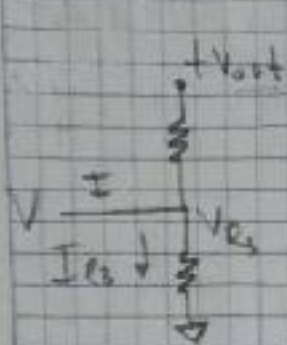 +Vout
I
V
VR3
IR3